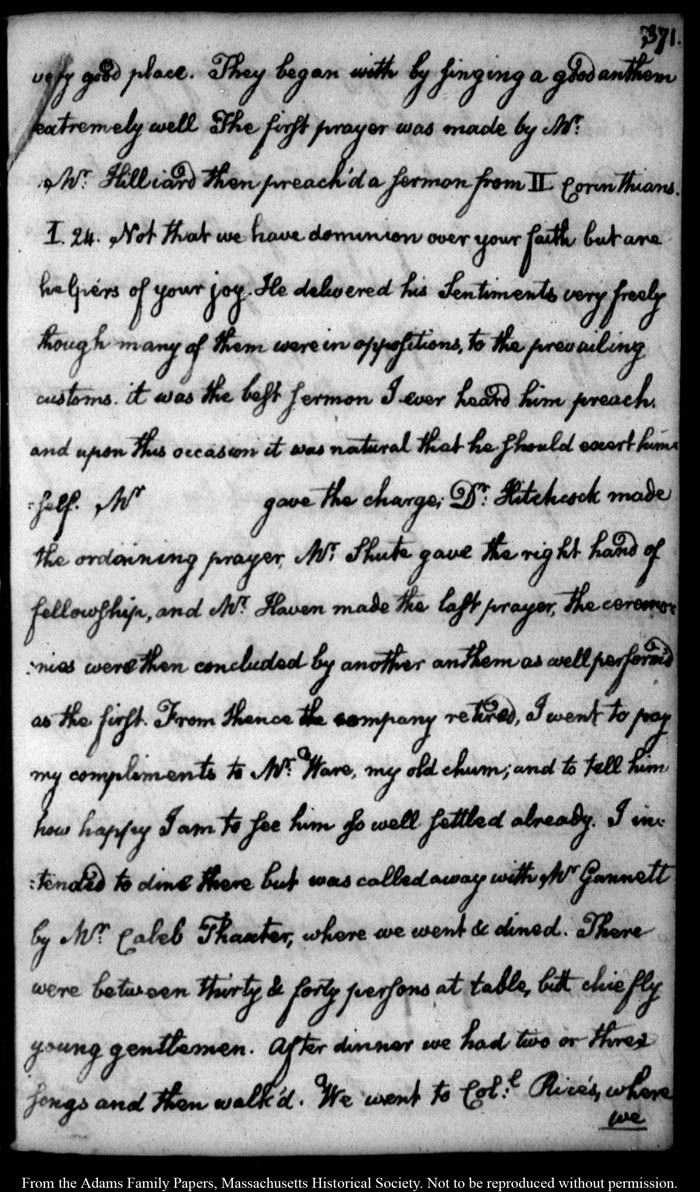 371.
very good place. They began with by singing a good anthem
extremely well The first prayer was made by Mr.
Mr. Hilliard then preach'd a sermon from II Corinthians.
I. 24. Not that we have dominion over your faith but are
helpers of your joy. He delivered his Sentiments very freely
though many of them were in oppositions, to the prevailing
customs. it was the best sermon I ever heard him preach.
and upon this occasion it was natural that he should exert him=
:self. Mr gave the charge; Dr. Hitchcock made
the ordaining prayer, Mr. Shute gave the right hand of
fellowship, and Mr. Haven made the last prayer, the ceremo:
:nies were then concluded by another anthem as well perform'd
as the first. From thence the company retired, I went to pay
my compliments to Mr. Ware, my old chum; and to tell him
how happy I am to see him so well settled already. I in:
:tended to dine there but was called away with Mr Gannett
by Mr. Caleb Thaxter, where we went & dined. There
were between thirty & forty persons at table, but chiefly
young gentlemen. After dinner we had two or three
songs and then walk'd. We went to Col:l Rice's, where
we
From the Adams Family Papers, Massachusetts Historical Society. Not to be reproduced without permission.